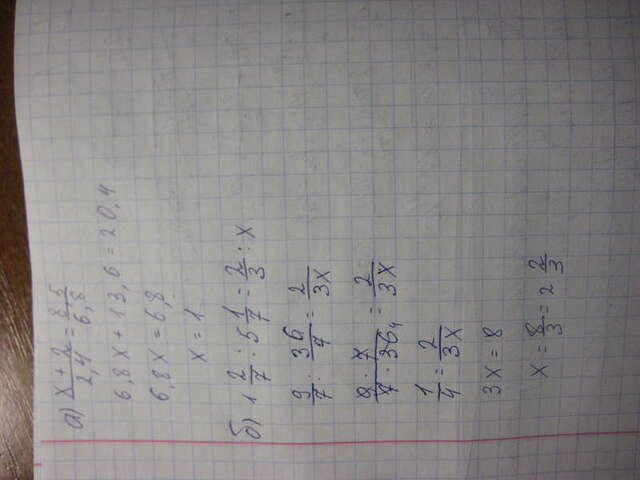 а) (x + 2)/2,4 = 8,5/6,8
6,8x + 13,6 = 20,4
6,8x = 6,8
x = 1
б) 1 2/7 : 5 1/7 = 2/3 : x
9/7 : 36/7 = 2/3x
9 · 7/7 · 36₄ = 2/3x
1/4 = 2/3x
3x = 8
x = 8/3 = 2 2/3